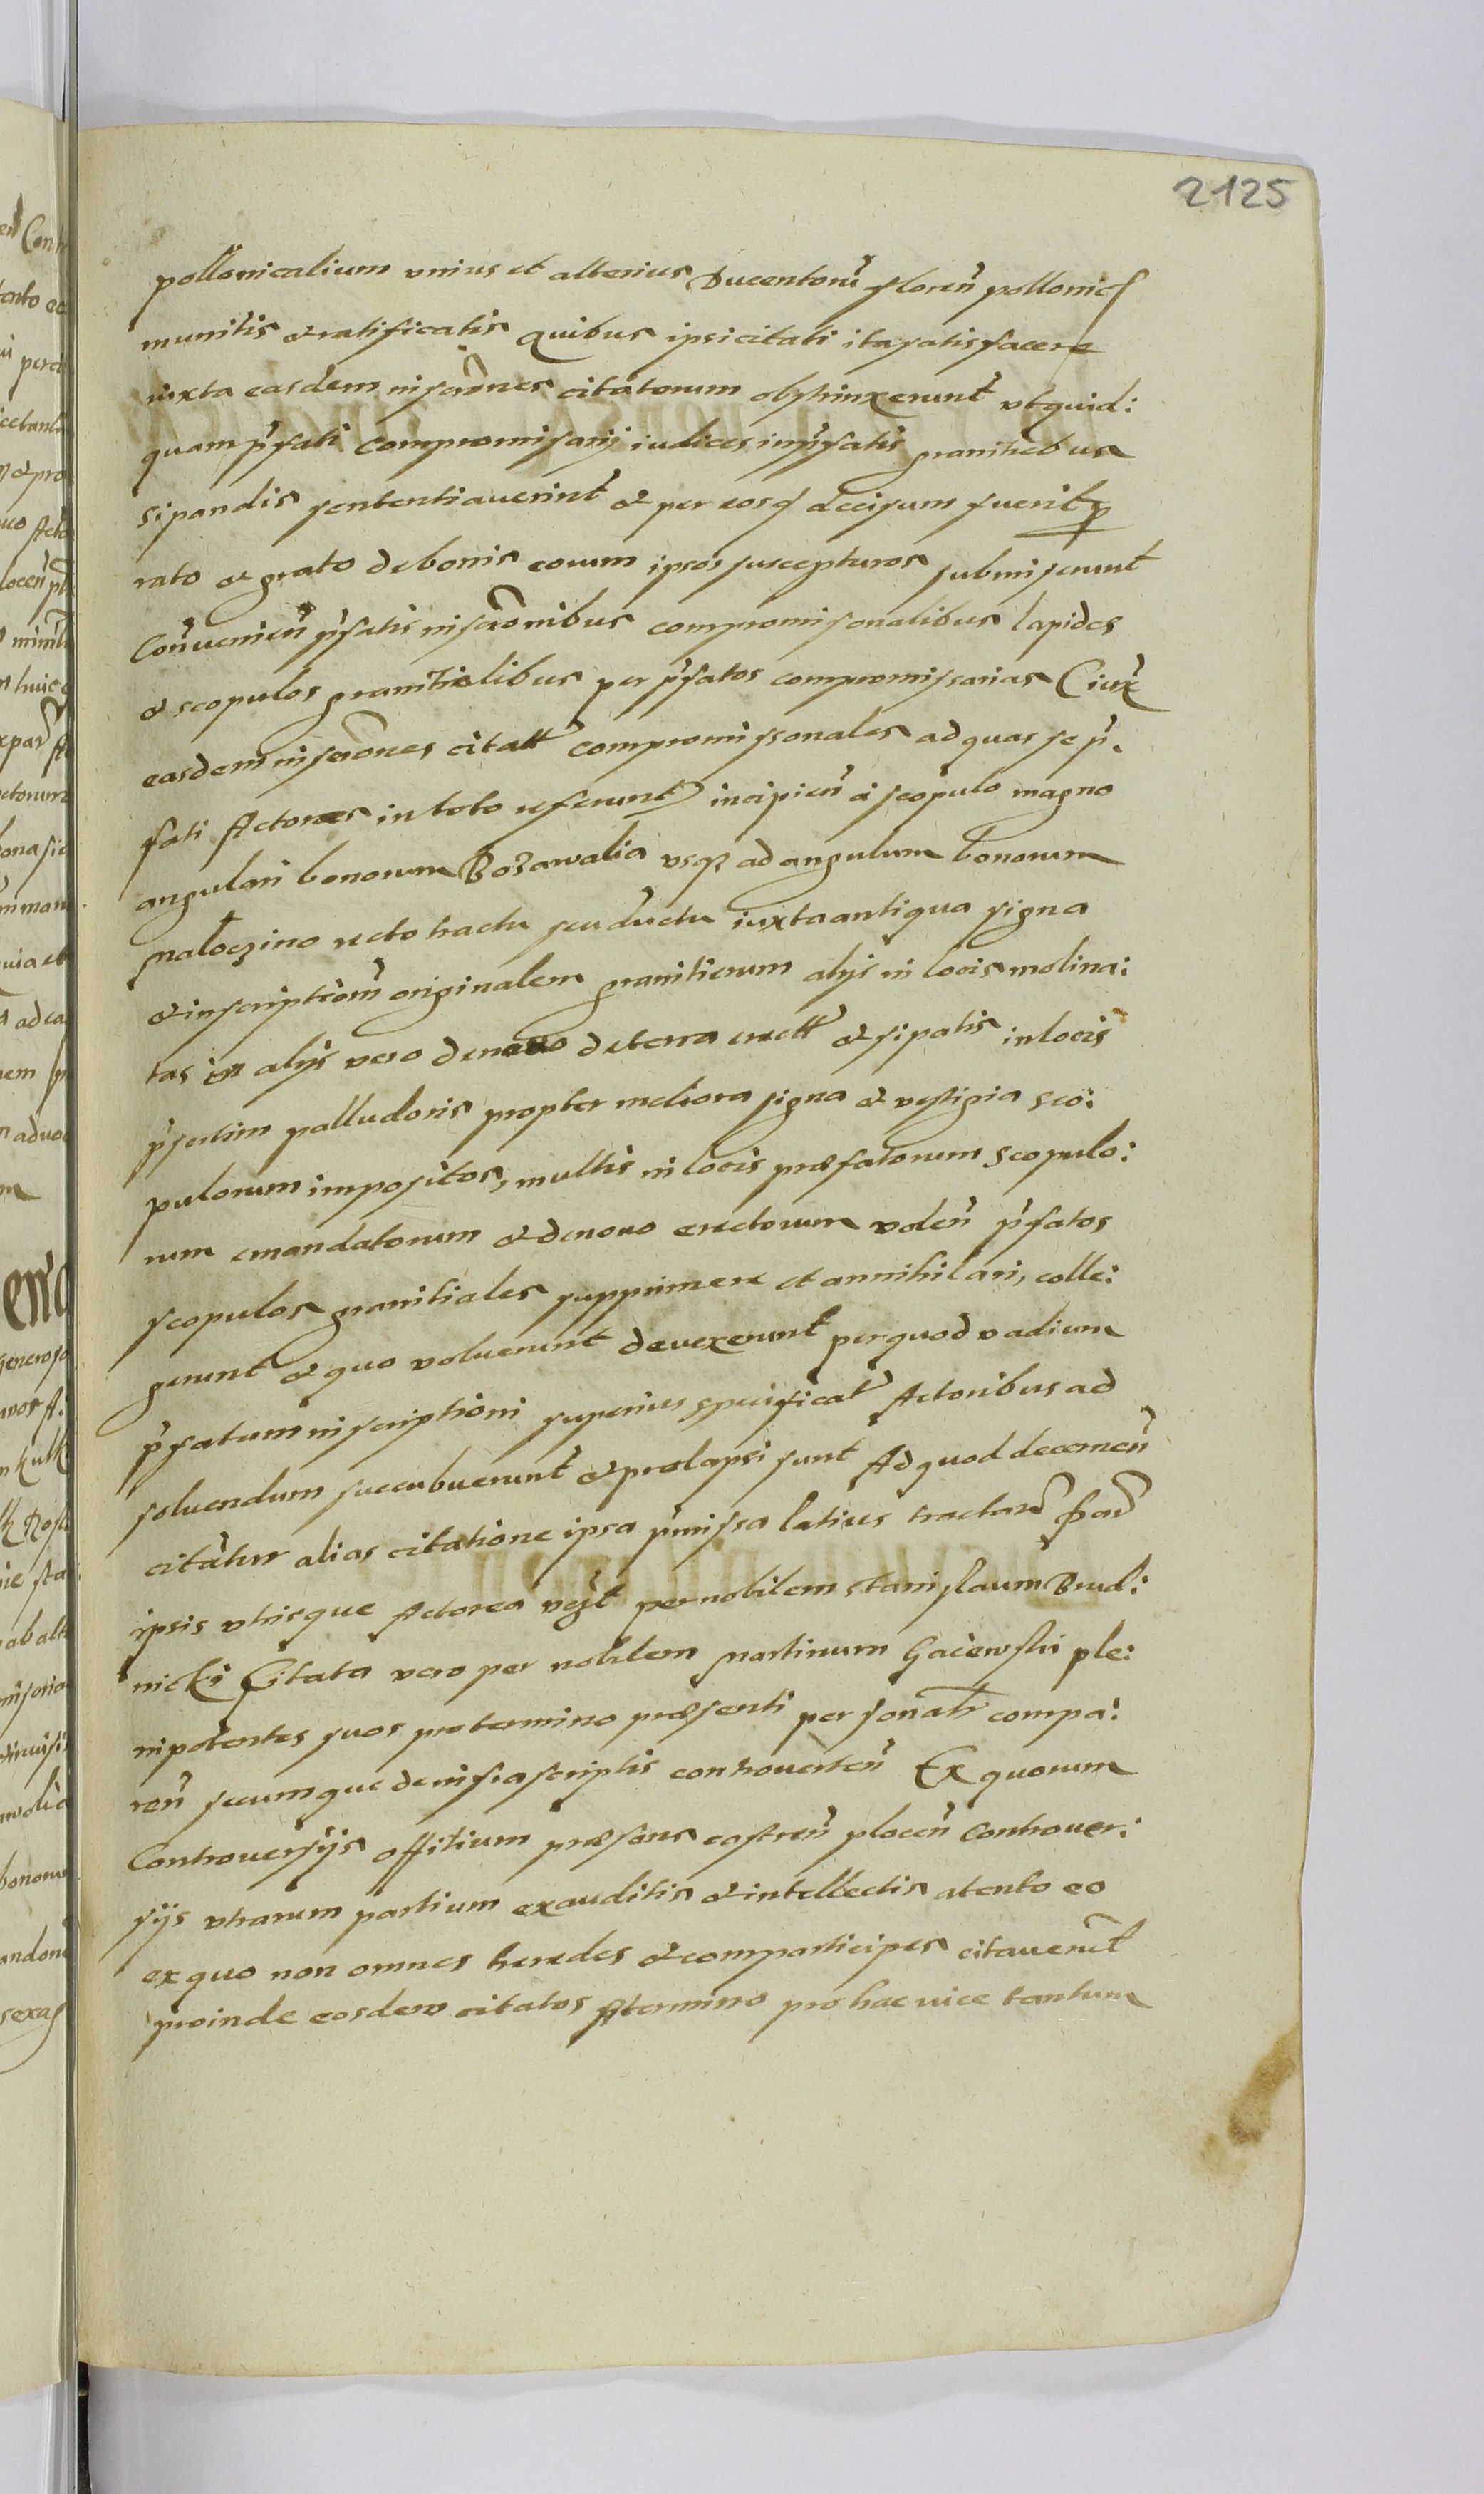 2125
pollonicalium vnius et alterius Ducentorũ floreñ pollonic
munitis & ratificatis Quibus ipsi citati ita satisfacere
iuxta easdem inscr̃ones citatorum obstrinxerunt vt quid:
quam p̃fati Compromisarij iudices in p̃fatis granitiebus
sipandis sententiauerint & per eos decisum fuerit p
rato & grato de bonis eorum ipsos suscepturos submiserunt
Conuenieñ p̃fatis inscr̃onibus compromisonalibus lapides
& scopulos granitialibus per p̃fatos compromissarias Ciux
easdem inscr̃ones citatt compromissonales ad quas se p̃.
fati Actores in toto referunt incipieñ a scopulo magno
angulari bonorum Bozawalia vsqz ad angulum bonorum
Maloczino recto tractu seu ductu iuxta antiqua signa
& inscriptiom̃ originalem granitierum alijs in locis molina:
tas in alijs vero denouo de terra erectt & sipatis in locis
p̃sertim palludosis propter meliora signa & vestigia sco:
pulorum impositos, multis in locis præfatorum scopulo:
rum emandatorum & denouo erectorum voleñ p̃fatos
scopulos granitiales supprimere et annihilari, colle:
gerunt & quo voluerunt deuexerunt per quod vadium
p̃fatum inscriptioni superius specificat Actoribus ad
soluendum succubuerunt & prolapsi sunt Ad quod decerneñ
citatur alias citatione ipsa p̃missa latius tractañ Par̃
ipsis vtrisque Actorea vest̃ per nobilem Stanislaum Brud:
nicki Citata vero per nobilem Martinum Gaiewski ple:
nipotentes suos pro termino præsenti personatr compa:
reñ secumque de infrascriptis controuerteñ Ex quorum
Controuersijs offitium præsens castreñ ploceñ Controuer:
sijs vtrarum partium exauditis & intellectis atento eo
ex quo non omnes heredes & comparticipes citauerint
proinde eosdem citatos A termino pro hac vice tantum